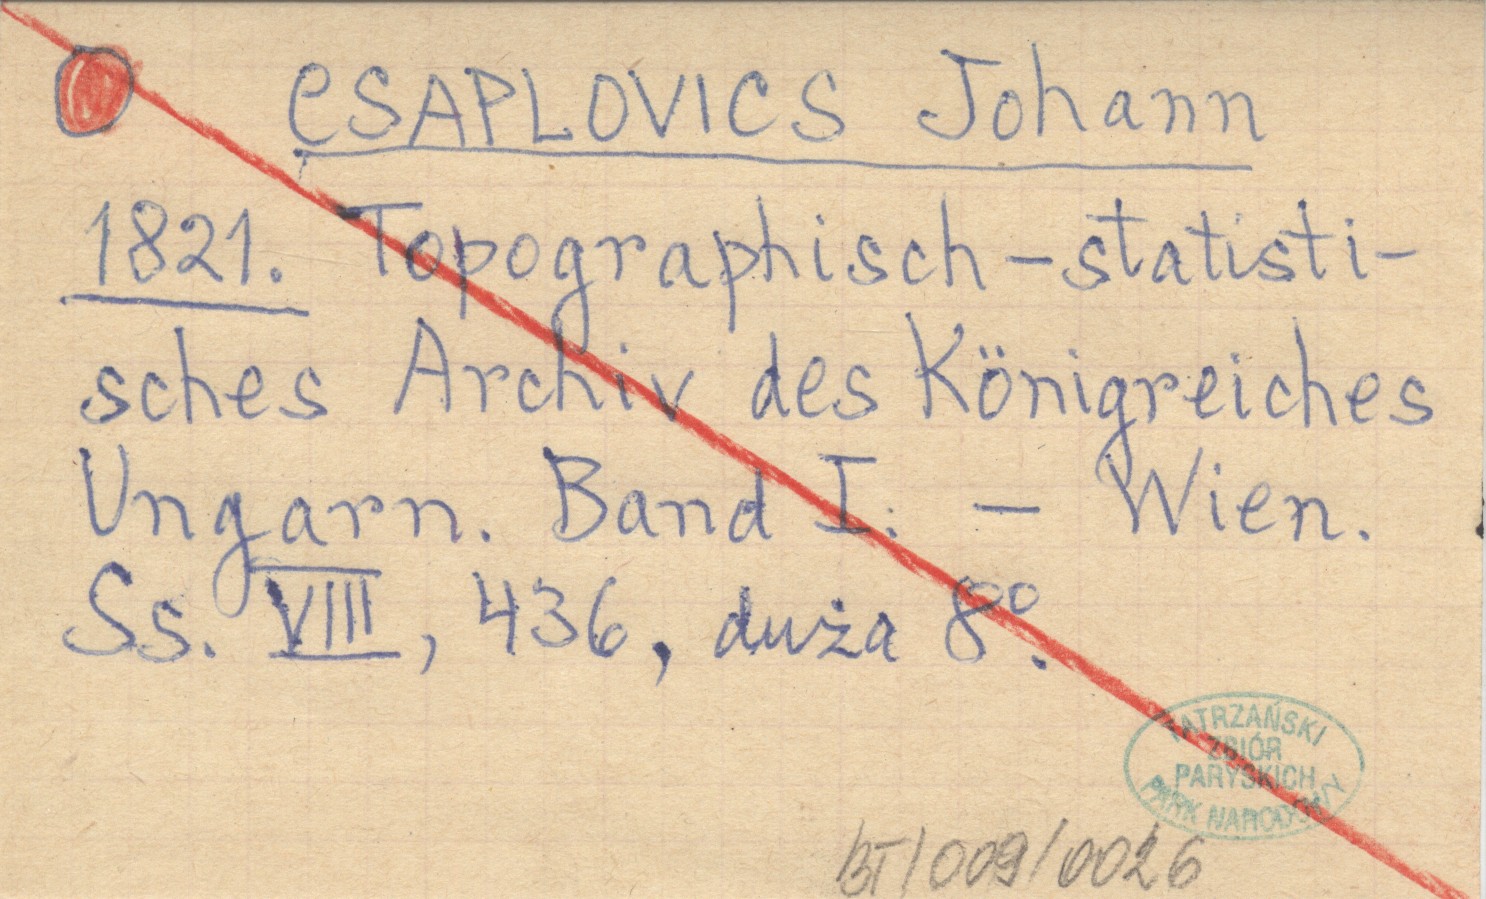 CSAPLOVICS Johann
1821. Topographisch-statisti-
sches Archiv des Königreiches
Ungarn. Band I. - Wien.
Ss. VIII, 436, duża 8°.
TATRZAŃSKI
ZBIÓR
PARYSKICH
PARK NARODOWY
BT/009/0026